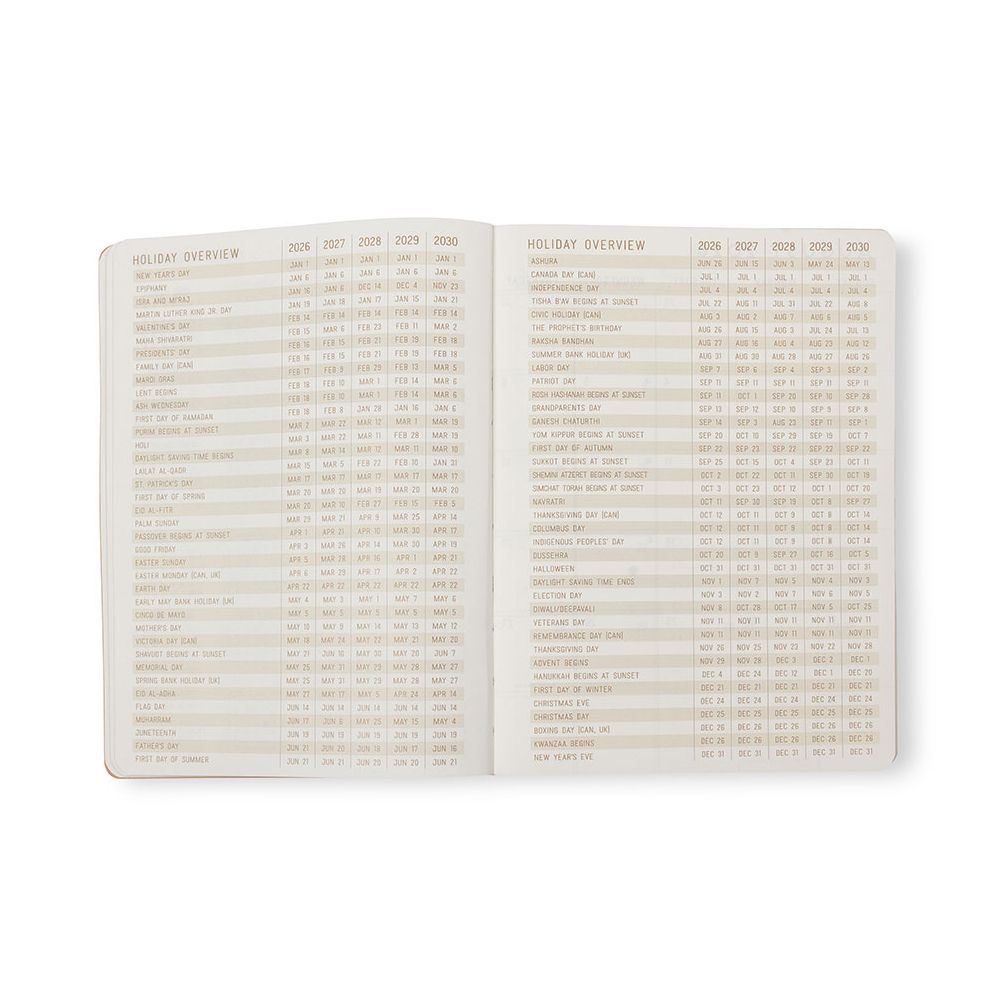 HOLIDAY OVERVIEW 2026 2027 2028 2029 2030
NEW YEAR'S DAY JAN 1 JAN 1 JAN 1 JAN 1 JAN 1
EPIPHANY JAN 6 JAN 6 JAN 6 JAN 6 JAN 6
ISRA AND MI'RAJ JAN 16 JAN 6 DEC 14 DEC 4 NOV 23
MARTIN LUTHER KING JR. DAY JAN 19 JAN 18 JAN 17 JAN 15 JAN 21
VALENTINE'S DAY FEB 14 FEB 14 FEB 14 FEB 14 FEB 14
MAHA SHIVARATRI FEB 15 MAR 6 FEB 23 FEB 11 MAR 2
PRESIDENTS' DAY FEB 16 FEB 15 FEB 21 FEB 19 FEB 18
FAMILY DAY (CAN) FEB 16 FEB 15 FEB 21 FEB 19 FEB 18
MARDI GRAS FEB 17 FEB 9 FEB 29 FEB 13 MAR 5
LENT BEGINS FEB 18 FEB 10 MAR 1 FEB 14 MAR 6
ASH WEDNESDAY FEB 18 FEB 10 MAR 1 FEB 14 MAR 6
FIRST DAY OF RAMADAN FEB 18 FEB 8 JAN 28 JAN 16 JAN 6
PURIM BEGINS AT SUNSET MAR 2 MAR 22 MAR 12 MAR 1 MAR 19
HOLI MAR 3 MAR 22 MAR 11 FEB 28 MAR 19
DAYLIGHT SAVING TIME BEGINS MAR 8 MAR 14 MAR 12 MAR 11 MAR 10
LAILAT AL-QADR MAR 15 MAR 5 FEB 22 FEB 10 JAN 31
ST. PATRICK'S DAY MAR 17 MAR 17 MAR 17 MAR 17 MAR 17
FIRST DAY OF SPRING MAR 20 MAR 20 MAR 19 MAR 20 MAR 20
EID AL-FITR MAR 20 MAR 10 FEB 26 FEB 15 FEB 5
PALM SUNDAY MAR 29 MAR 21 APR 9 MAR 25 APR 14
PASSOVER BEGINS AT SUNSET APR 1 APR 21 APR 10 MAR 30 APR 17
GOOD FRIDAY APR 3 MAR 26 APR 14 MAR 30 APR 19
EASTER SUNDAY APR 5 MAR 28 APR 16 APR 1 APR 21
EASTER MONDAY (CAN, UK) APR 6 MAR 29 APR 17 APR 2 APR 22
EARTH DAY APR 22 APR 22 APR 22 APR 22 APR 22
EARLY MAY BANK HOLIDAY (UK) MAY 4 MAY 3 MAY 1 MAY 7 MAY 6
CINCO DE MAYO MAY 5 MAY 5 MAY 5 MAY 5 MAY 5
MOTHER'S DAY MAY 10 MAY 9 MAY 14 MAY 13 MAY 12
VICTORIA DAY (CAN) MAY 18 MAY 24 MAY 22 MAY 21 MAY 20
SHAVUOT BEGINS AT SUNSET MAY 21 JUN 10 MAY 30 MAY 19 JUN 7
MEMORIAL DAY MAY 25 MAY 31 MAY 29 MAY 28 MAY 27
SPRING BANK HOLIDAY (UK) MAY 25 MAY 31 MAY 29 MAY 28 MAY 27
EID AL-ADHA MAY 27 MAY 17 MAY 5 APR 24 APR 14
FLAG DAY JUN 14 JUN 14 JUN 14 JUN 14 JUN 14
MUHARRAM JUN 17 JUN 6 MAY 25 MAY 15 MAY 4
JUNETEENTH JUN 19 JUN 19 JUN 19 JUN 19 JUN 19
FATHER'S DAY JUN 21 JUN 20 JUN 18 JUN 17 JUN 16
FIRST DAY OF SUMMER JUN 21 JUN 21 JUN 20 JUN 20 JUN 21
HOLIDAY OVERVIEW 2026 2027 2028 2029 2030
ASHURA JUN 26 JUN 15 JUN 3 MAY 24 MAY 13
CANADA DAY (CAN) JUL 1 JUL 1 JUL 1 JUL 1 JUL 1
INDEPENDENCE DAY JUL 4 JUL 4 JUL 4 JUL 4 JUL 4
TISHA B'AV BEGINS AT SUNSET JUL 22 AUG 11 JUL 31 JUL 22 AUG 8
CIVIC HOLIDAY (CAN) AUG 3 AUG 2 AUG 7 AUG 6 AUG 5
THE PROPHET'S BIRTHDAY AUG 26 AUG 15 AUG 3 JUL 24 JUL 13
RAKSHA BANDHAN AUG 27 AUG 16 AUG 4 AUG 23 AUG 12
SUMMER BANK HOLIDAY (UK) AUG 31 AUG 30 AUG 28 AUG 27 AUG 26
LABOR DAY SEP 7 SEP 6 SEP 4 SEP 3 SEP 2
PATRIOT DAY SEP 11 SEP 11 SEP 11 SEP 11 SEP 11
ROSH HASHANAH BEGINS AT SUNSET SEP 11 OCT 1 SEP 20 SEP 9 SEP 27
GRANDPARENTS DAY SEP 13 SEP 12 SEP 10 SEP 9 SEP 8
GANESH CHATURTHI SEP 14 SEP 3 AUG 23 SEP 11 SEP 1
YOM KIPPUR BEGINS AT SUNSET SEP 20 OCT 10 SEP 29 SEP 19 OCT 7
FIRST DAY OF AUTUMN SEP 22 SEP 23 SEP 22 SEP 22 SEP 22
SUKKOT BEGINS AT SUNSET SEP 25 OCT 15 OCT 4 SEP 23 OCT 11
SHEMINI ATZERET BEGINS AT SUNSET OCT 2 OCT 22 OCT 11 SEP 30 OCT 19
SIMCHAT TORAH BEGINS AT SUNSET OCT 3 OCT 23 OCT 12 OCT 1 OCT 20
NAVRATRI OCT 11 SEP 30 SEP 19 OCT 8 SEP 27
THANKSGIVING DAY (CAN) OCT 12 OCT 11 OCT 9 OCT 8 OCT 14
COLUMBUS DAY OCT 12 OCT 11 OCT 9 OCT 8 OCT 14
INDIGENOUS PEOPLES' DAY OCT 12 OCT 11 OCT 9 OCT 8 OCT 14
DUSSEHRA OCT 20 OCT 9 SEP 27 OCT 16 OCT 5
HALLOWEEN OCT 31 OCT 31 OCT 31 OCT 31 OCT 31
DAYLIGHT SAVING TIME ENDS NOV 1 NOV 7 NOV 5 NOV 4 NOV 3
ELECTION DAY NOV 3 NOV 2 NOV 7 NOV 6 NOV 5
DIWALI/DEEPAVALI NOV 8 OCT 28 OCT 17 NOV 5 OCT 25
VETERANS DAY NOV 11 NOV 11 NOV 11 NOV 11 NOV 11
REMEMBRANCE DAY (CAN) NOV 11 NOV 11 NOV 11 NOV 11 NOV 11
THANKSGIVING DAY NOV 26 NOV 25 NOV 23 NOV 22 NOV 28
ADVENT BEGINS NOV 29 NOV 28 DEC 3 DEC 2 DEC 1
HANUKKAH BEGINS AT SUNSET DEC 4 DEC 24 DEC 12 DEC 1 DEC 20
FIRST DAY OF WINTER DEC 21 DEC 21 DEC 21 DEC 21 DEC 21
CHRISTMAS EVE DEC 24 DEC 24 DEC 24 DEC 24 DEC 24
CHRISTMAS DAY DEC 25 DEC 25 DEC 25 DEC 25 DEC 25
BOXING DAY (CAN, UK) DEC 26 DEC 26 DEC 26 DEC 26 DEC 26
KWANZAA BEGINS DEC 26 DEC 26 DEC 26 DEC 26 DEC 26
NEW YEAR'S EVE DEC 31 DEC 31 DEC 31 DEC 31 DEC 31